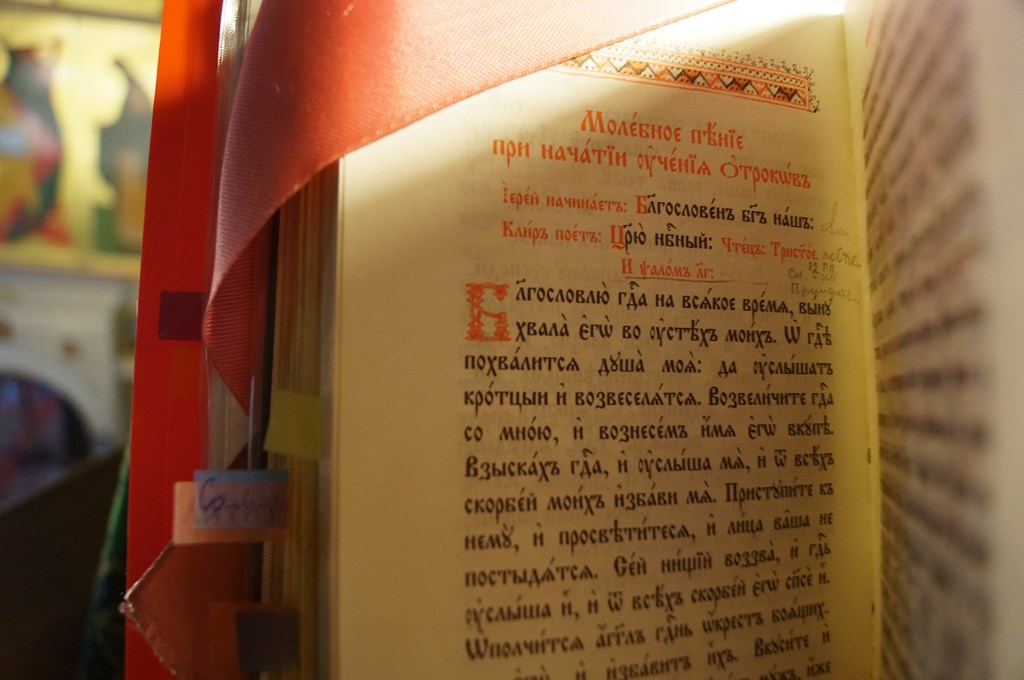 Моле́бное пѣ́нїе
при нача́тїи ᲂу҆че́нїѧ ѻ҆трокѡ́въ
І҆ере́й начина́етъ: Бл҃гослове́нъ бг҃ъ на́шъ:
Кли́ръ пое́тъ: Цр҃ю̀ нбⷭ҇ный: Чте́цъ: Трист҃о́е.
И҆ ѱало́мъ л҃г:
Бл҃гословлю̀ гдⷭ҇а на всѧ́кое вре́мѧ, вы́нꙋ
хвала̀ є҆гѡ̀ во ᲂу҆стѣ́хъ мои́хъ. Ѡ҆ гдⷭ҇ѣ
похва́литсѧ дꙋша̀ моѧ̀: да ᲂу҆слы́шатъ
кро́тцыи и҆ возвеселѧ́тсѧ. Возвели́чите гдⷭ҇а
со мно́ю, и҆ вознесе́мъ и҆́мѧ є҆гѡ̀ вкꙋ́пѣ.
Взыска́хъ гдⷭ҇а, и҆ ᲂу҆слы́ша мѧ̀, и҆ ѿ всѣ́хъ
скорбе́й мои́хъ и҆зба́ви мѧ̀. Пристꙋпи́те къ
немꙋ̀, и҆ просвѣти́тесѧ, и҆ ли́ца ва̑ша не
постыдѧ́тсѧ. Се́й ни́щїй воззва̀, и҆ гдⷭ҇ь
ᲂу҆слы́ша и҆̀, и҆ ѿ всѣ́хъ скорбе́й є҆гѡ̀ сп҃сѐ и҆̀.
Ѡ҆полчи́тсѧ а҆́гг҃лъ гдⷭ҇нь ѡ҆́крестъ боѧ́щих-
и҆ и҆зба́витъ и҆̀хъ. Вкꙋси́те и҆